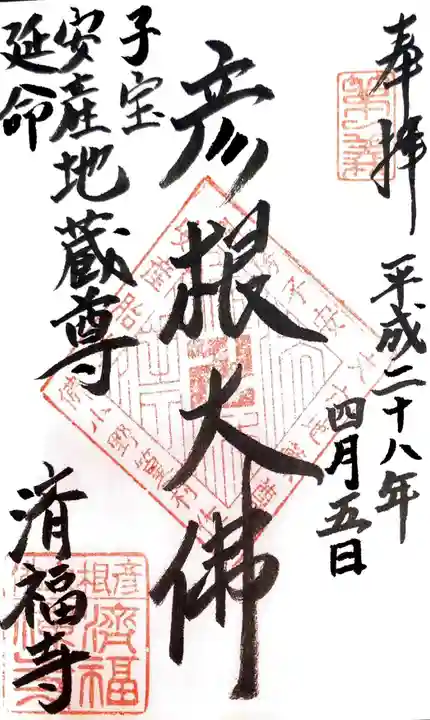 奉拝
平成二十八年
四月五日
彦根大佛
子宝
安産地蔵尊
延命
済福寺
彦根
濟福